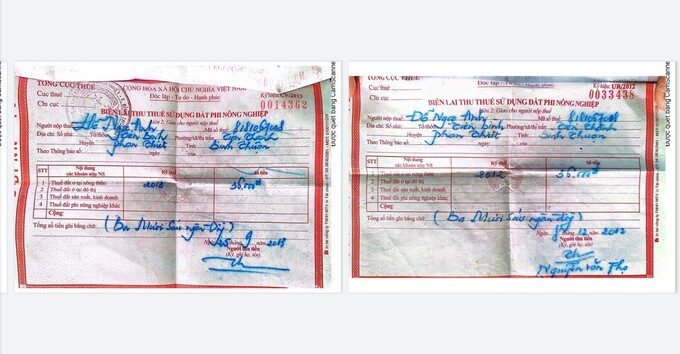 TỔNG CỤC THUẾ
CỘNG HÒA XÃ HỘI CHỦ NGHĨA VIỆT NAM
Độc lập - Tự do - Hạnh phúc
Cục thuế
Chi cục
0014362
BIÊN LAI THU THUẾ SỬ DỤNG ĐẤT PHI NÔNG NGHIỆP
Liên 2: Giao cho người nộp thuế
Người nộp thuế: Anh Mã số thuế:
Địa chỉ: Số nhà: Tổ/thôn: Tiến Bình Phường/xã/thị trấn: Tiến Thành
Huyện Phan Thiết Bình Thuận
Theo Thông báo số:
STT Nội dung các khoản nộp NS Số tiền
1 Thuế đất ở tại nông thôn 2013 36.000đ
2 Thuế đất ở tại đô thị
3 Thuế đất sản xuất, kinh doanh
4 Thuế đất phi nông nghiệp khác
Cộng:
Tổng số tiền ghi bằng chữ: (Ba Mươi Sáu ngàn đ)
Người thu tiền
(Ký, ghi họ, tên)
TỔNG CỤC THUẾ
Độc lập - Tự do - Hạnh phúc
Ký hiệu: UR/2012
Cục thuế
Chi cục
0033438
BIÊN LAI THU THUẾ SỬ DỤNG ĐẤT PHI NÔNG NGHIỆP
Liên 2: Giao cho người nộp thuế
Người nộp thuế: Đỗ Ngọc Anh Mã số thuế:
Địa chỉ: Số nhà: Tổ/thôn: Tiến Bình Phường/xã/thị trấn: Tiến Thành
Huyện Phan Thiết Bình Thuận
Theo Thông báo số:
STT Nội dung các khoản nộp NS Số tiền
1 Thuế đất ở tại nông thôn 2012 36.000đ
2 Thuế đất ở tại đô thị
3 Thuế đất sản xuất, kinh doanh
4 Thuế đất phi nông nghiệp khác
Cộng:
Tổng số tiền ghi bằng chữ: (Ba Mươi Sáu ngàn đ)
Ngày 8 tháng 12 năm 2012
Người thu tiền
(Ký, ghi họ, tên)
Nguyễn Văn Thọ
Được quét bằng CamScanner
Được quét bằng CamScanner